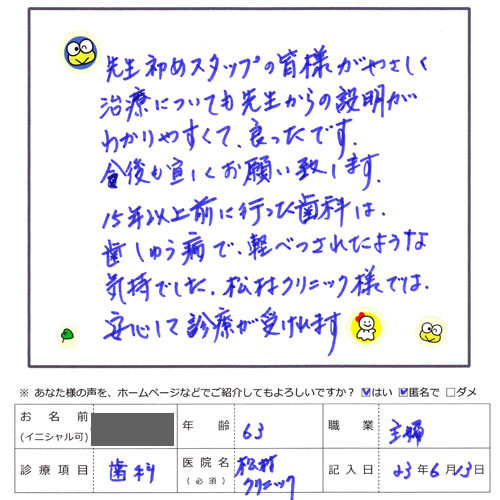 先生初めスタップの皆様がやさしく
治療についても先生からの説明が
わかりやすくて、良ったです。
今後も宜しくお願い致します。
15年以上前に行った歯科は、
歯しゅう病で、軽べつされたような
気持でした。松村クリニック様では、
安心して診療が受けれます
※ あなた様の声を、ホームページなどでご紹介してもよろしいですか？ ☑はい ☑匿名で □ダメ
お名前 (イニシャル可) 年齢 63 職業 主婦
診療項目 歯科 医院名 (必須) 松村クリニック 記入日 23年6月13日